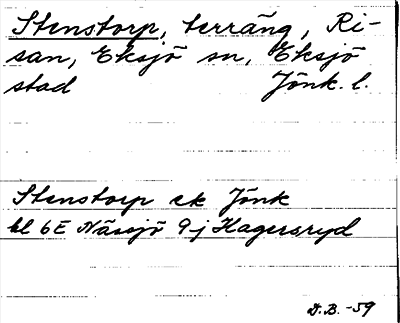 Stenstorp, terräng, Ri-
san, Eksjö sn, Eksjö
stad Jönk. l.
Stenstorp ek Jönk
bl 6E Nässjö 9j Hagersryd
D.B. -59